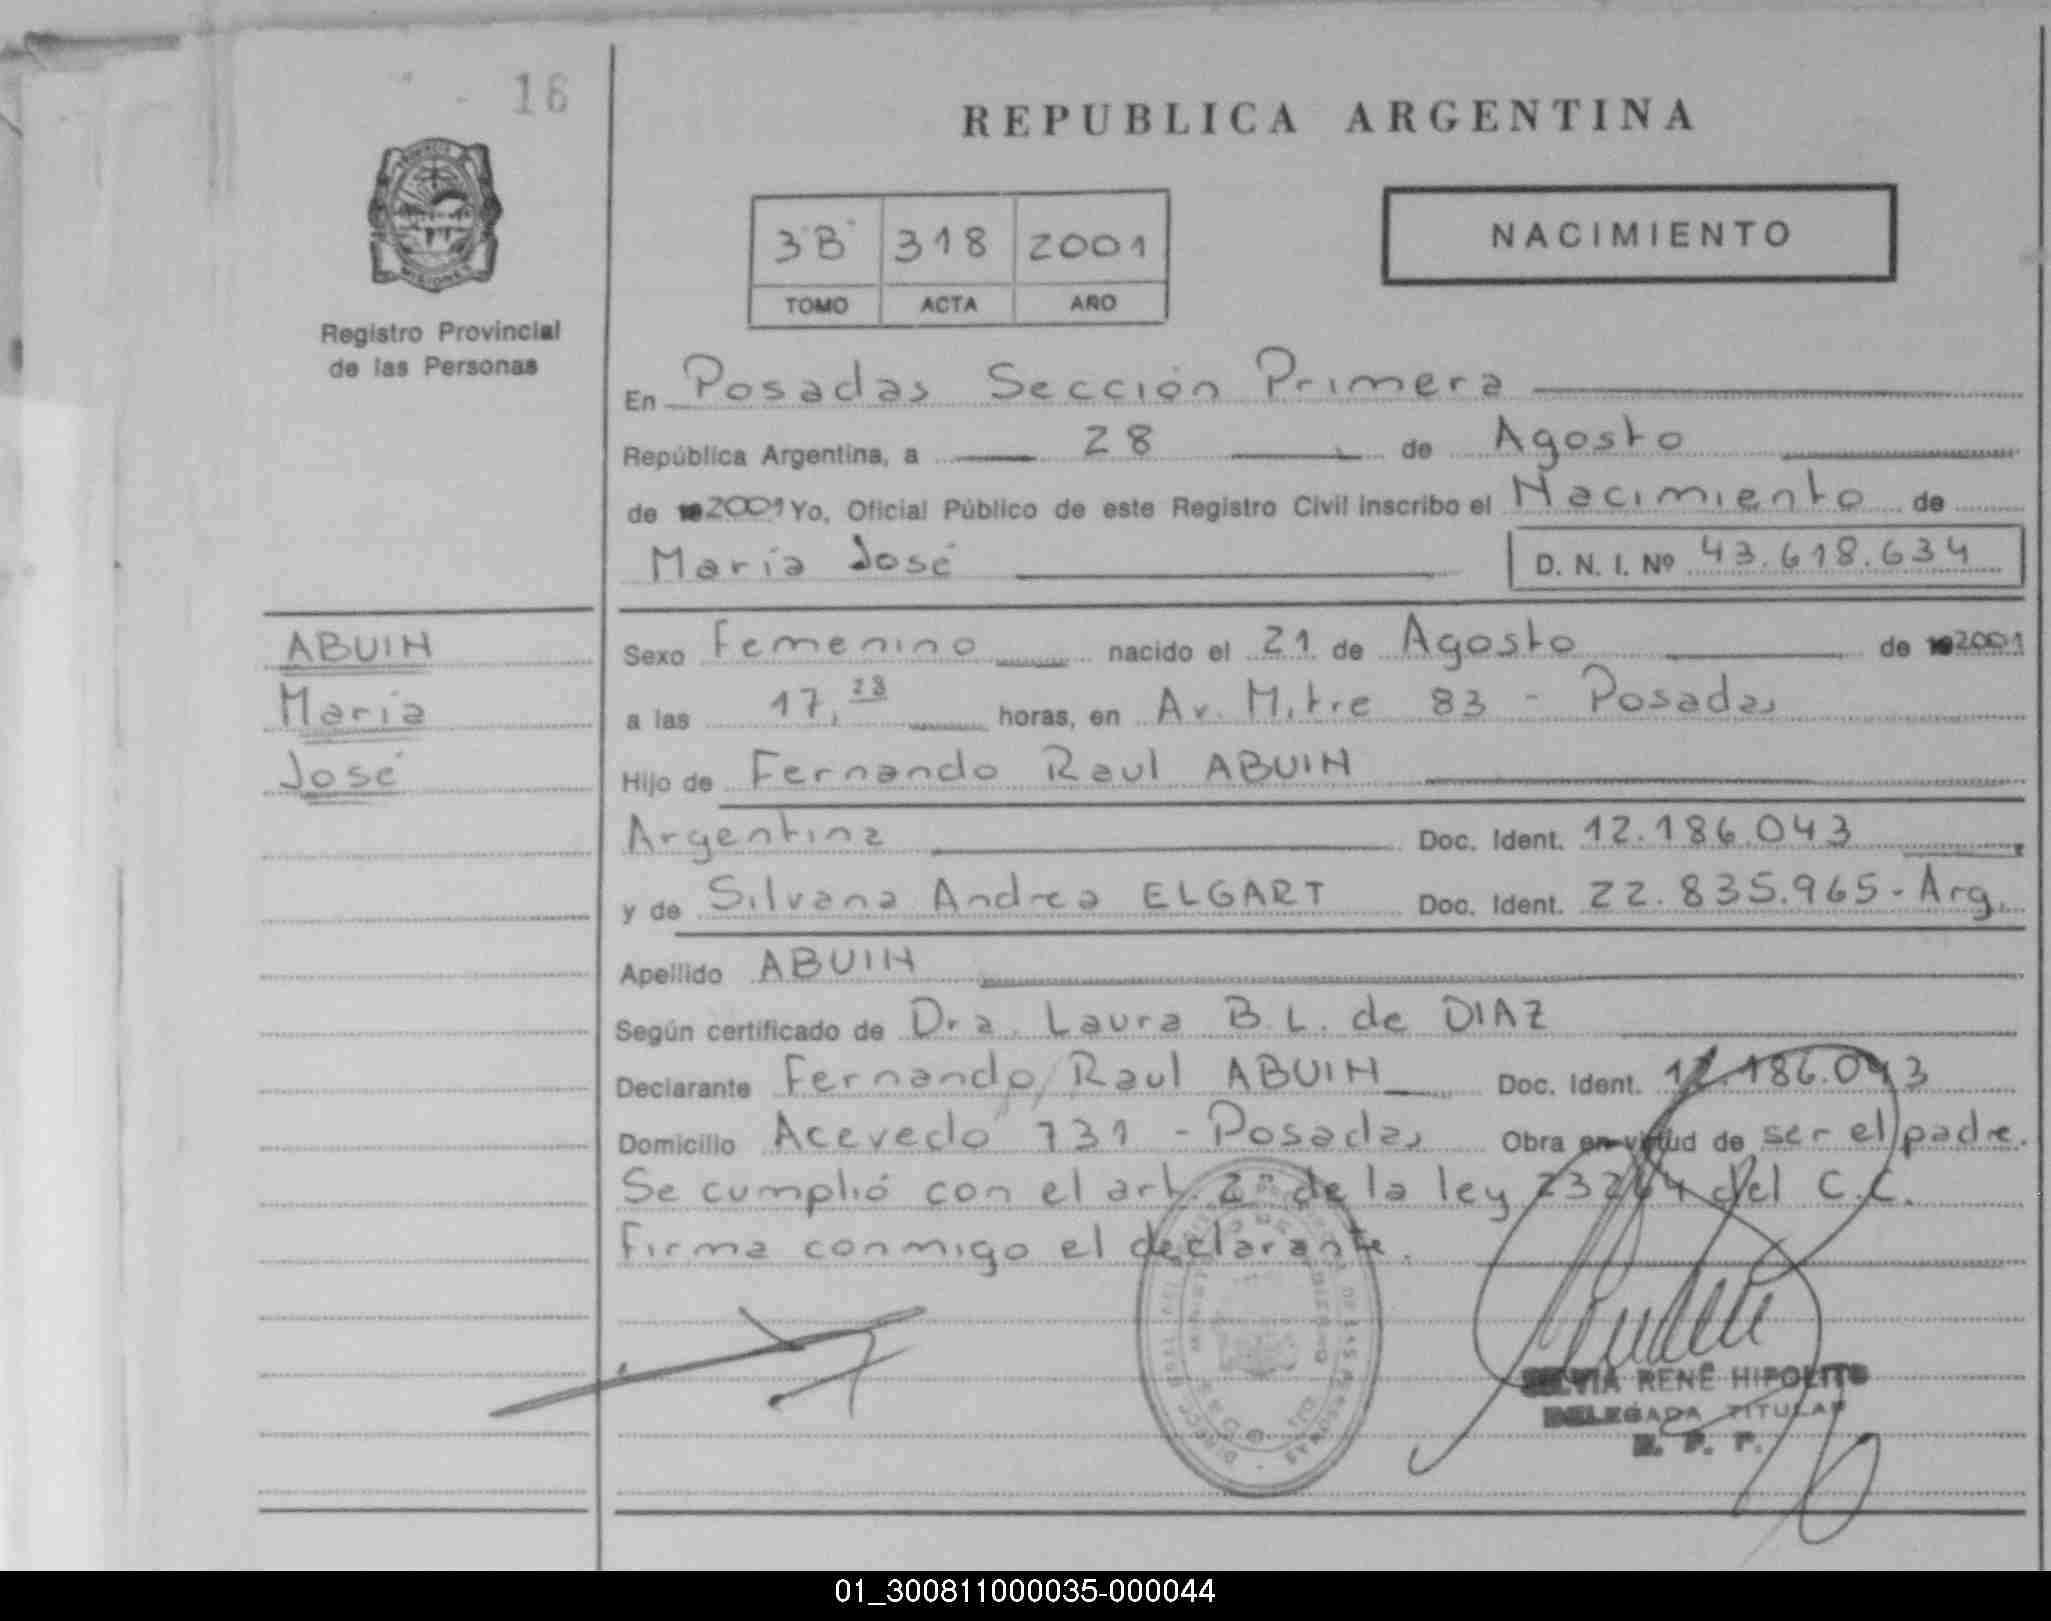 16
REPUBLICA ARGENTINA
3"B" 318 2001
TOMO ACTA AÑO
NACIMIENTO
Registro Provincial
de las Personas
En Posadas Sección Primera
República Argentina, a 28 de Agosto
de 2001 Yo, Oficial Público de este Registro Civil inscribo el Nacimiento de
María José D. N. I. Nº 43.618.634
ABUIN
María
José
Sexo Femenino nacido el 21 de Agosto de 2001
a las 17,28 horas, en Av. Mitre 83 - Posadas
Hijo de Fernando Raul ABUIN
Argentina Doc. Ident. 12.186.043
y de Silvana Andrea ELGART Doc. Ident. 22.835.965 - Arg.
Apellido ABUIN
Según certificado de Dra. Laura B.L. de DIAZ
Declarante Fernando Raul ABUIN Doc. Ident. 12.186.043
Domicilio Acevedo 731 - Posadas Obra en virtud de ser el padre.
Se cumplió con el art. 2º de la ley 23264 del C.C.
Firma conmigo el declarante.
SILVIA RENÉ HIPOLITO
DELEGADA TITULAR
R. P. P.
01_300811000035-000044